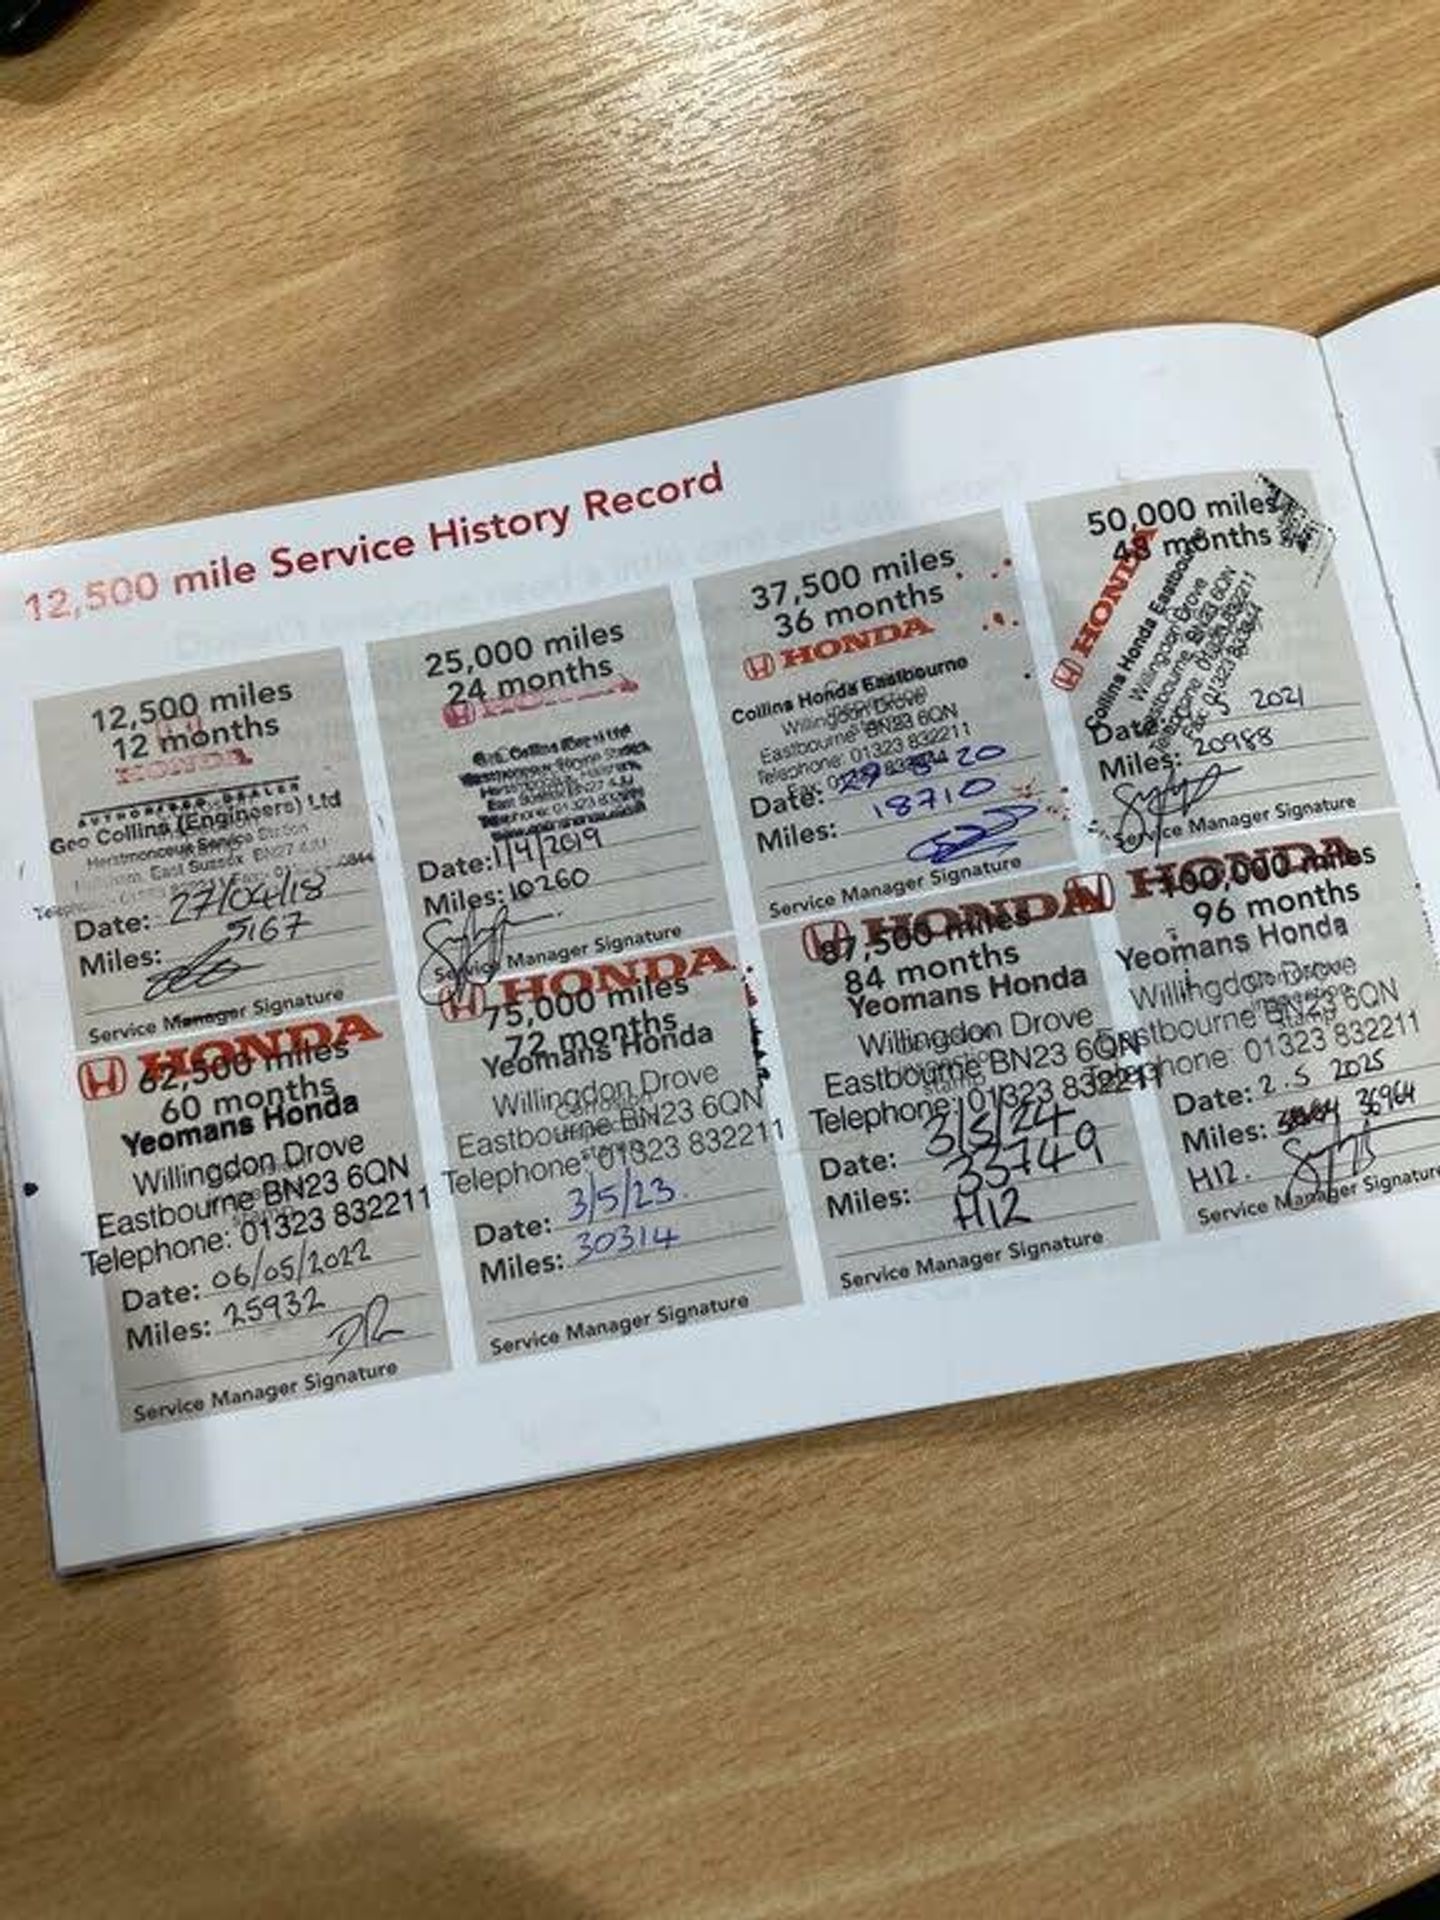 12,500 mile Service History Record
12,500 miles
12 months
HONDA
AUTHORISED DEALER
Geo Collins (Engineers) Ltd
Herstmonceux Service Station
East Sussex BN27 4JU
Date: 27/04/18
Miles: 5167
Service Manager Signature
25,000 miles
24 months
HONDA
Date: 1/4/2019
Miles: 10260
Service Manager Signature
37,500 miles
36 months
HONDA
Collins Honda Eastbourne
Willingdon Drove
Eastbourne BN23 6QN
Telephone: 01323 832211
Date: 20
Miles: 18710
Service Manager Signature
50,000 miles
48 months
HONDA
Collins Honda Eastbourne
Willingdon Drove
Eastbourne BN23 6QN
Telephone: 01323 832211
Date: 2021
Miles: 20988
Service Manager Signature
HONDA
62,500 miles
60 months
Yeomans Honda
Willingdon Drove
Eastbourne BN23 6QN
Telephone: 01323 832211
Date: 06/05/2022
Miles: 25932
Service Manager Signature
HONDA
75,000 miles
72 months
Yeomans Honda
Willingdon Drove
Eastbourne BN23 6QN
Telephone: 01323 832211
Date: 3/5/23
Miles: 30314
Service Manager Signature
HONDA
87,500 miles
84 months
Yeomans Honda
Willingdon Drove
Eastbourne BN23 6QN
Telephone: 01323 832211
Date: 3/5/24
Miles: 33749
H12
Service Manager Signature
HONDA
100,000 miles
96 months
Yeomans Honda
Willingdon Drove
Eastbourne BN23 6QN
Telephone: 01323 832211
Date: 2.5 2025
Miles: 36964
H12.
Service Manager Signature